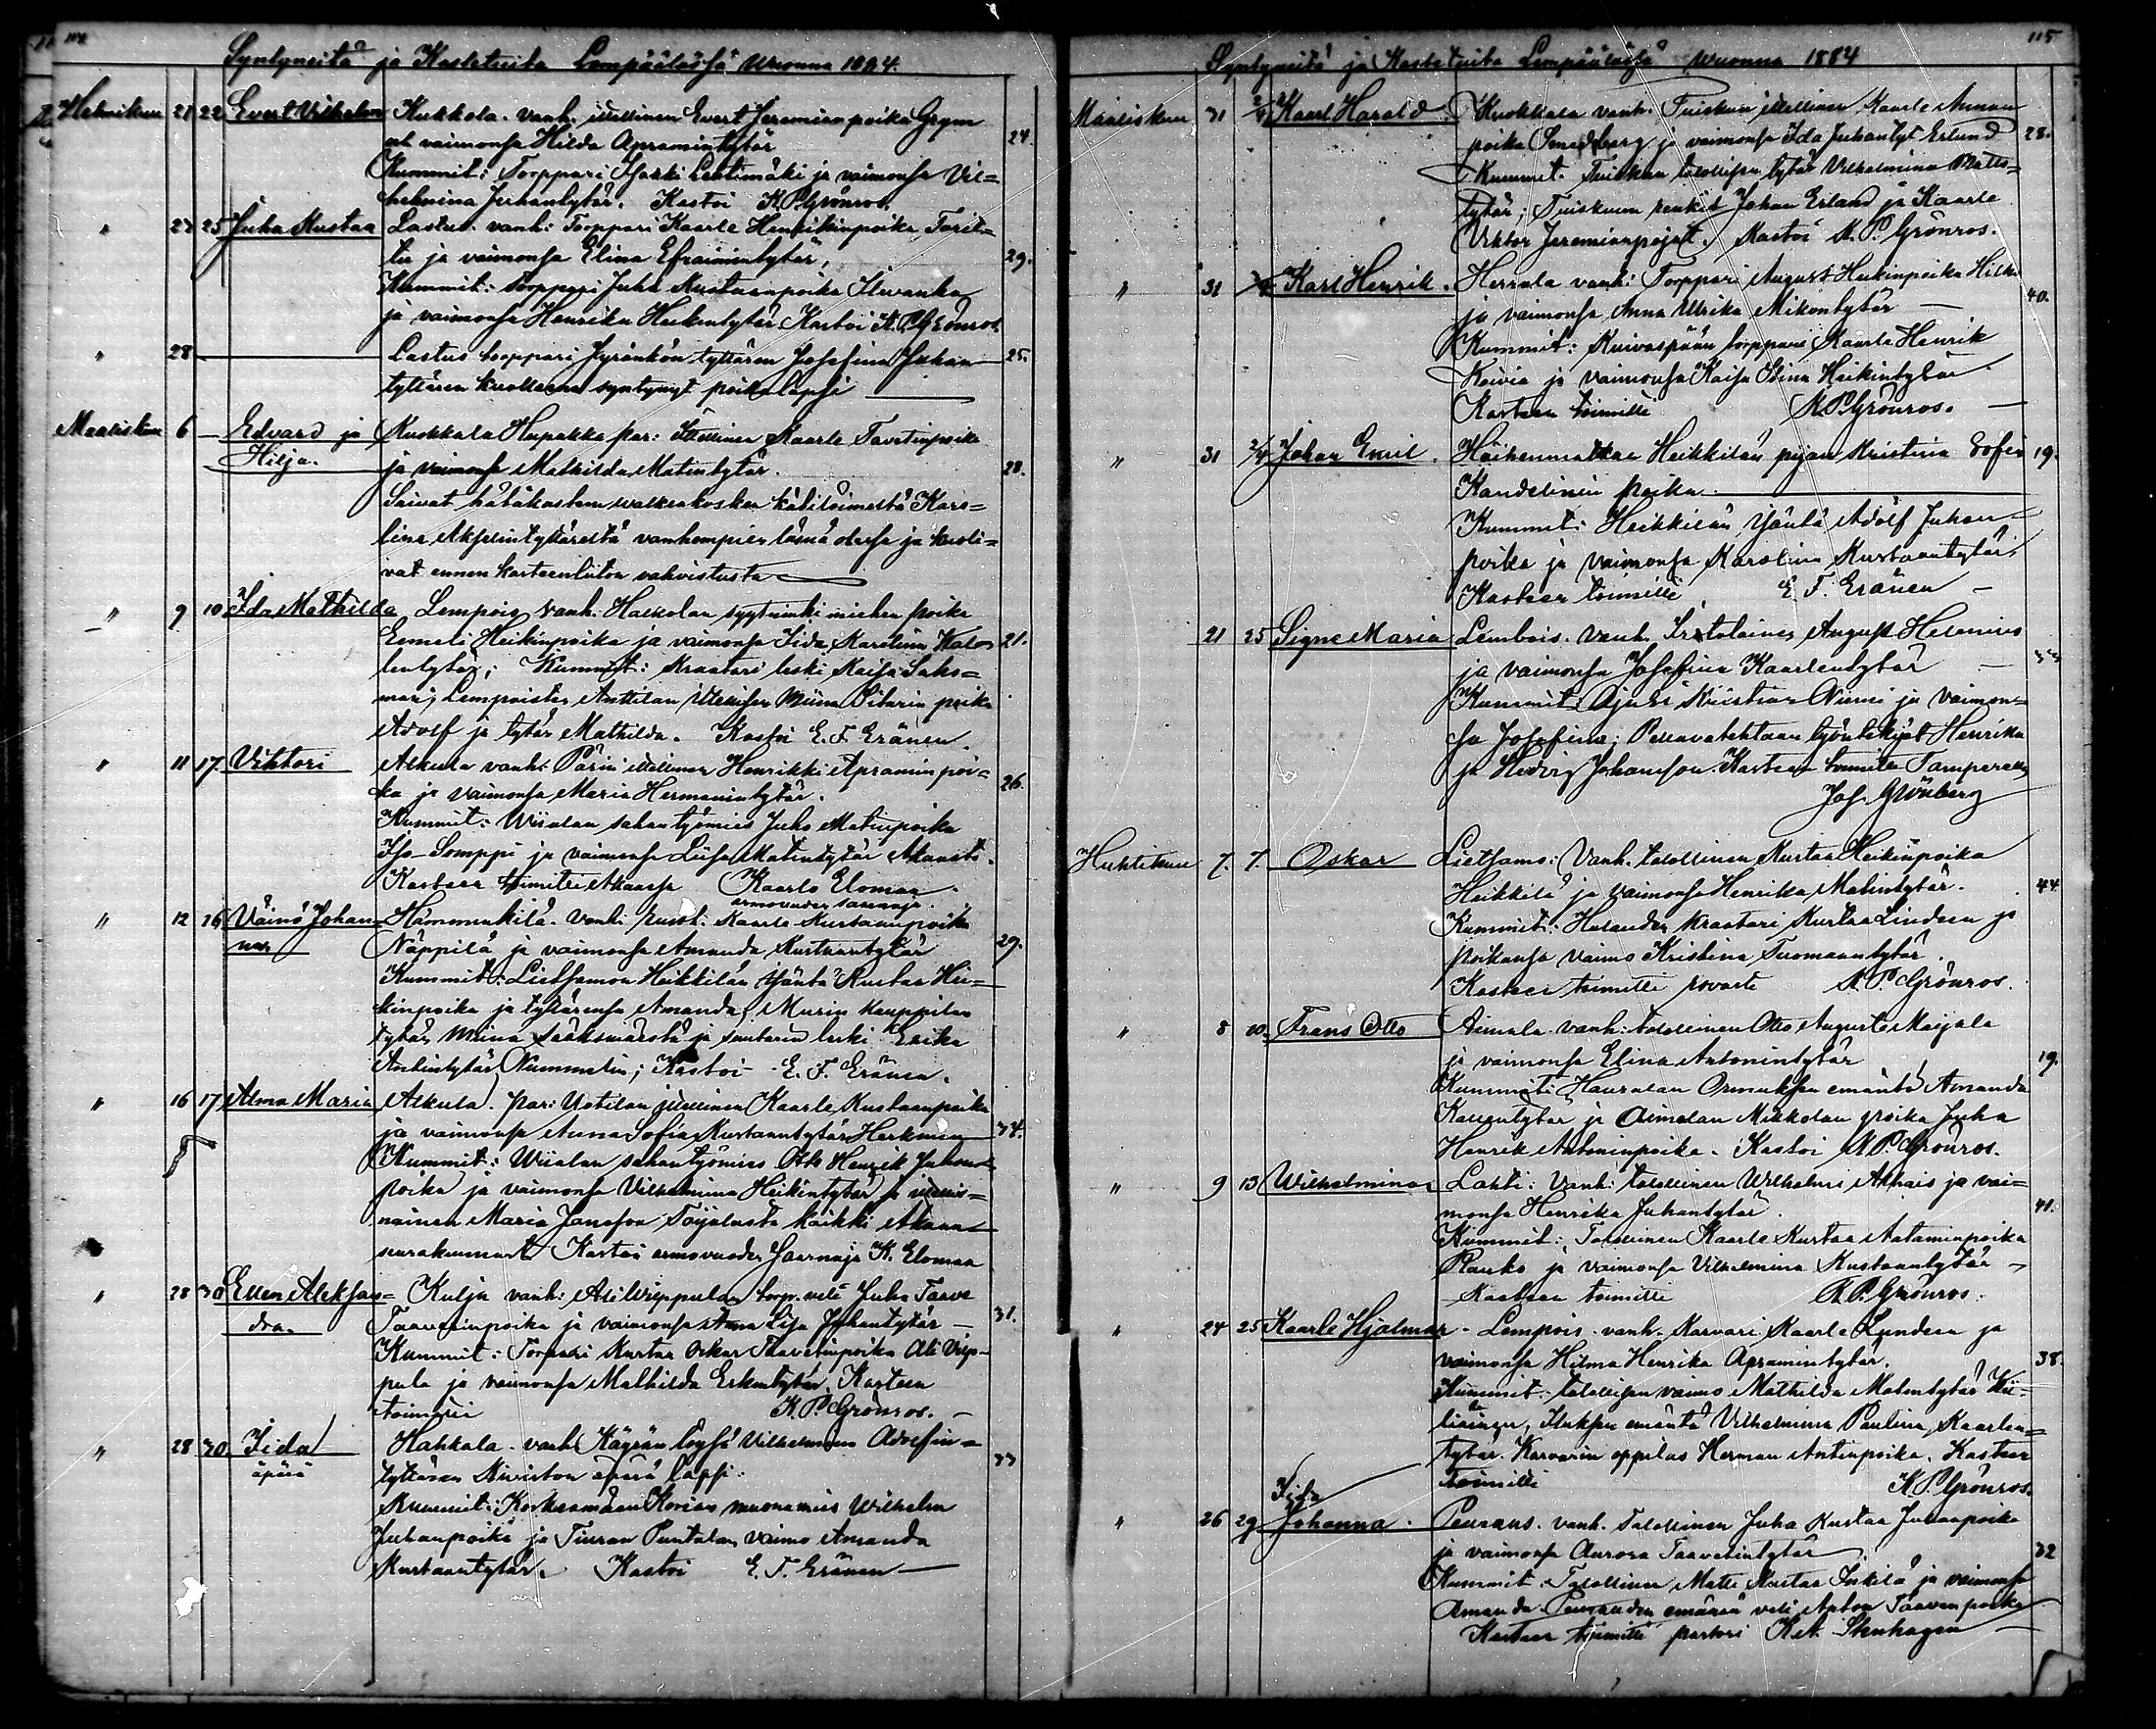 114
Syntyneitä ja Kastetuita Lempäälässä Wuonna 1884.
Helmikuu 21 22 Evert Vilhelm Kukkola. vanh. itsellinen Evert Jeremianpoika Grym
ut vaimonsa Hilda Apramintytär 24.
Kummit: Torppari Isakki Lastimäki ja vaimonsa Vil=
helmina Juhantytär. Kastoi K.P. Grönros.
" 22 25 Juha Kustaa Lastus. vanh: Torppari Kaarle Henrikinpoika
tu ja vaimonsa Elina Efraimintytär, 29.
Kummit: Torppari Juha Kustaanpoika Silvanka
ja vaimonsa Henrika Heikintytär Kastoi K.P. Grönros.
" 28 Lastus torppari Jyränkön tyttären Josefina Juhan 25.
tyttären kuolleena syntynyt poikalapsi
Maaliskuu 6 Edvard ja Kuokkala Hupakka par: Itsellinen Kaarle Tavetinpoika
Hilja. ja vaimonsa Mathilda Matintytär. 28.
Saivat hätäkasteen walkiakosken kätilöimeltä Karo=
lina Akselintyttäreltä vanhempien läsnä olessa ja kuoli=
vat ennen kasteenliiton vahvistusta
" 9 10 Ida Mathilda Lempois vanh. Hakkolan syytinki miehen poika
Eemeli Heikinpoika ja vaimonsa Iida Karolina Kalen 21.
lentytär; Kummit: Kraatari leski Kaisa Saks=
man; Lempoisten Anttilan itsellisen Miina Vitarin poika
Adolf ja tytär Mathilda. Kastoi E. F. Eränen.
" 11 17. Viktori Alkula vanh: Pärin itsellinen Henrikki Apraminpoi=
ka ja vaimonsa Maria Hermanintytär. 26.
Kummit: Wiialan sahantyömies Juho Matinpoika
Iso-Somppi ja vaimonsa Liisa Matintytär Akaasta.
Kasteen toimitti Akaassa Kaarlo Elomaa
armovuoden saarnaja.
" 12 16 Väinö Johan= Hämmukilä. Vanh: Kaarle Kustaanpoika
nes Näppilä ja vaimonsa Amanda Kustaantytär 29.
Kummit: Lietsamon Heikkilän isäntä Kustaa Hei=
kinpoika ja tyttärensä Amanda, Murin Kauppilan
tytär Miina Sääksmäestä ja suutarin leski Erika
Antintytär Nummelin; Kastoi - E. F. Eränen.
" 16 17 Alma Maria Alkula. par: Uotilan itsellinen Kaarle Kustaanpoika
ja vaimonsa Anna Sofia Kustaantytär Herkmen 34.
Kummit: Wiialan sahantyömies Otto Henrik Juhan
poika ja vaimonsa Vilhelmina Heikintytär ja itsellis=
nainen Maria Jansson Toijalasta kaikki Akaan
seurakunnasta Kastoi armovuoden saarnaja K. Elomaa
" 28 30 Ellen Aleksan= Kulju vanh: Ali Wippulan torp. veli Juha Taave
dra. Taavetinpoika ja vaimonsa Anna Lisa Juhantytär 31.
Kummit: Torppari Kustaa Oskar Taavetinpoika Ali Vip=
pula ja vaimonsa Mathilda Erkintytär, Kasteen
toimitti K. P. Grönros.
" 28 30. Iida Hahkala. vanh: Käyrän loysä Vilhelmiina Adolfin=
äpärä tyttären Niiniston äpärä lapsi. 33
Kummit: Korkeamäen Korian muonamies Wilhelm
Juhanpoika ja Tiuran Puntalan vaimo Amanda
Kustaantytär. Kastoi E. F. Eränen
115
Syntyneitä ja Kastetuita Lempäälässä Wuonna 1884
Maaliskuu 31 2/4 Kaarl Harald Kuokkala vanh. Tuiskun itsellinen Kaarle Annan
poika Smedberg ja vaimonsa Ida Juhantyt Erlund 28.
Kummit. Tuiskun talollisen tytär Vilhelmina Matts=
tytär; Tuiskun renkit Johan Erland ja Kaarle
Viktor Jeremianpojat. Kastoi K. P. Grönros.
" 31 Karl Henrik. Herrala vanh: Torppari August Heikinpoika
ja vaimonsa Anna Ulrika Mikontytär 40.
Kummit: Kuivaspään torppari Kaarle Henrik
Koivia ja vaimonsa Kaisa Stina Heikintytär
Kasteen toimitti K.P. Grönros.
" 31 2/4 Johan Emil. Häihenmatkan Heikkilän piian Kristina Sofia 19.
Kandelinin poika.
Kummit: Heikkilän isäntä Adolf Juhan=
poika ja vaimonsa Karolina Kustaantytär.
Kasteen toimitti E. F. Eränen
21 25 Signe Maria Lembois. vanh. Irtolainen August Helenius
ja vaimonsa Josefina Kaarlentytär 33
Kummit: Ajuri Kristian Niemi ja vaimon=
sa Josefina; Pellavatehtaan työntekijät Henrika
ja Hedvig Johansson. Kasteen toimitti Tampereella
Jos. Grönberg
Huhtikuu 7. 7. Oskar Lietsamo: Vanh. talollinen Kustaa Heikinpoika
Heikkilä ja vaimonsa Henrika Matintytär. 44.
Kummit: Hulauden kraatari Kustaa Linden ja
poikansa vaimo Kristina Tuomaantytär.
Kasteen toimitti rovasti K. P. Grönros.
" 8 10. Frans Otto Aimala. vanh: talollinen Otto Auguste Maijala
ja vaimonsa Elina Antonintytär 19.
Kummit: Hauralan Ormuksen emäntä Amanda
Kallentytär ja Aimalan Mikkolan poika Juha
Henrik Antoninpoika. Kastoi K. P. Grönros.
" 9 13 Wilhelmina Lahti: Vanh: talollinen Wilhelmi Alhais ja vai=
monsa Henrika Juhantytär. 41.
Kummit: Talollinen Kaarle Kustaa Aataminpoika
Rauko ja vaimonsa Vilhelmina Kustaantytär
Kasteen toimitti K. P. Grönros.
" 24 25 Kaarle Hjalmar - Lempois. vanh. Karvari Kaarle Lunden ja
vaimonsa Hilma Henrika Apramintytär. 38.
Kummit: talollisen vaimo Mathilda Matintytär
Vilhelmina Paulina Kaarlen=
tytär. Karvarin oppilas Herman Antinpoika. Kasteen
toimitti K. P. Grönros.
" 26 29 Iida Johanna. Peurans. vanh. Talollinen Juha Kustaa Juhanpoika
ja vaimonsa Aurora Taavetintytär 32
Kummit: Talollinen Matti Kustaa Inkilä ja vaimonsa
Amanda. Peurauden emännän veli Anton Taavetinpoika
Kasteen toimitti pastori K.A. Stenhagen